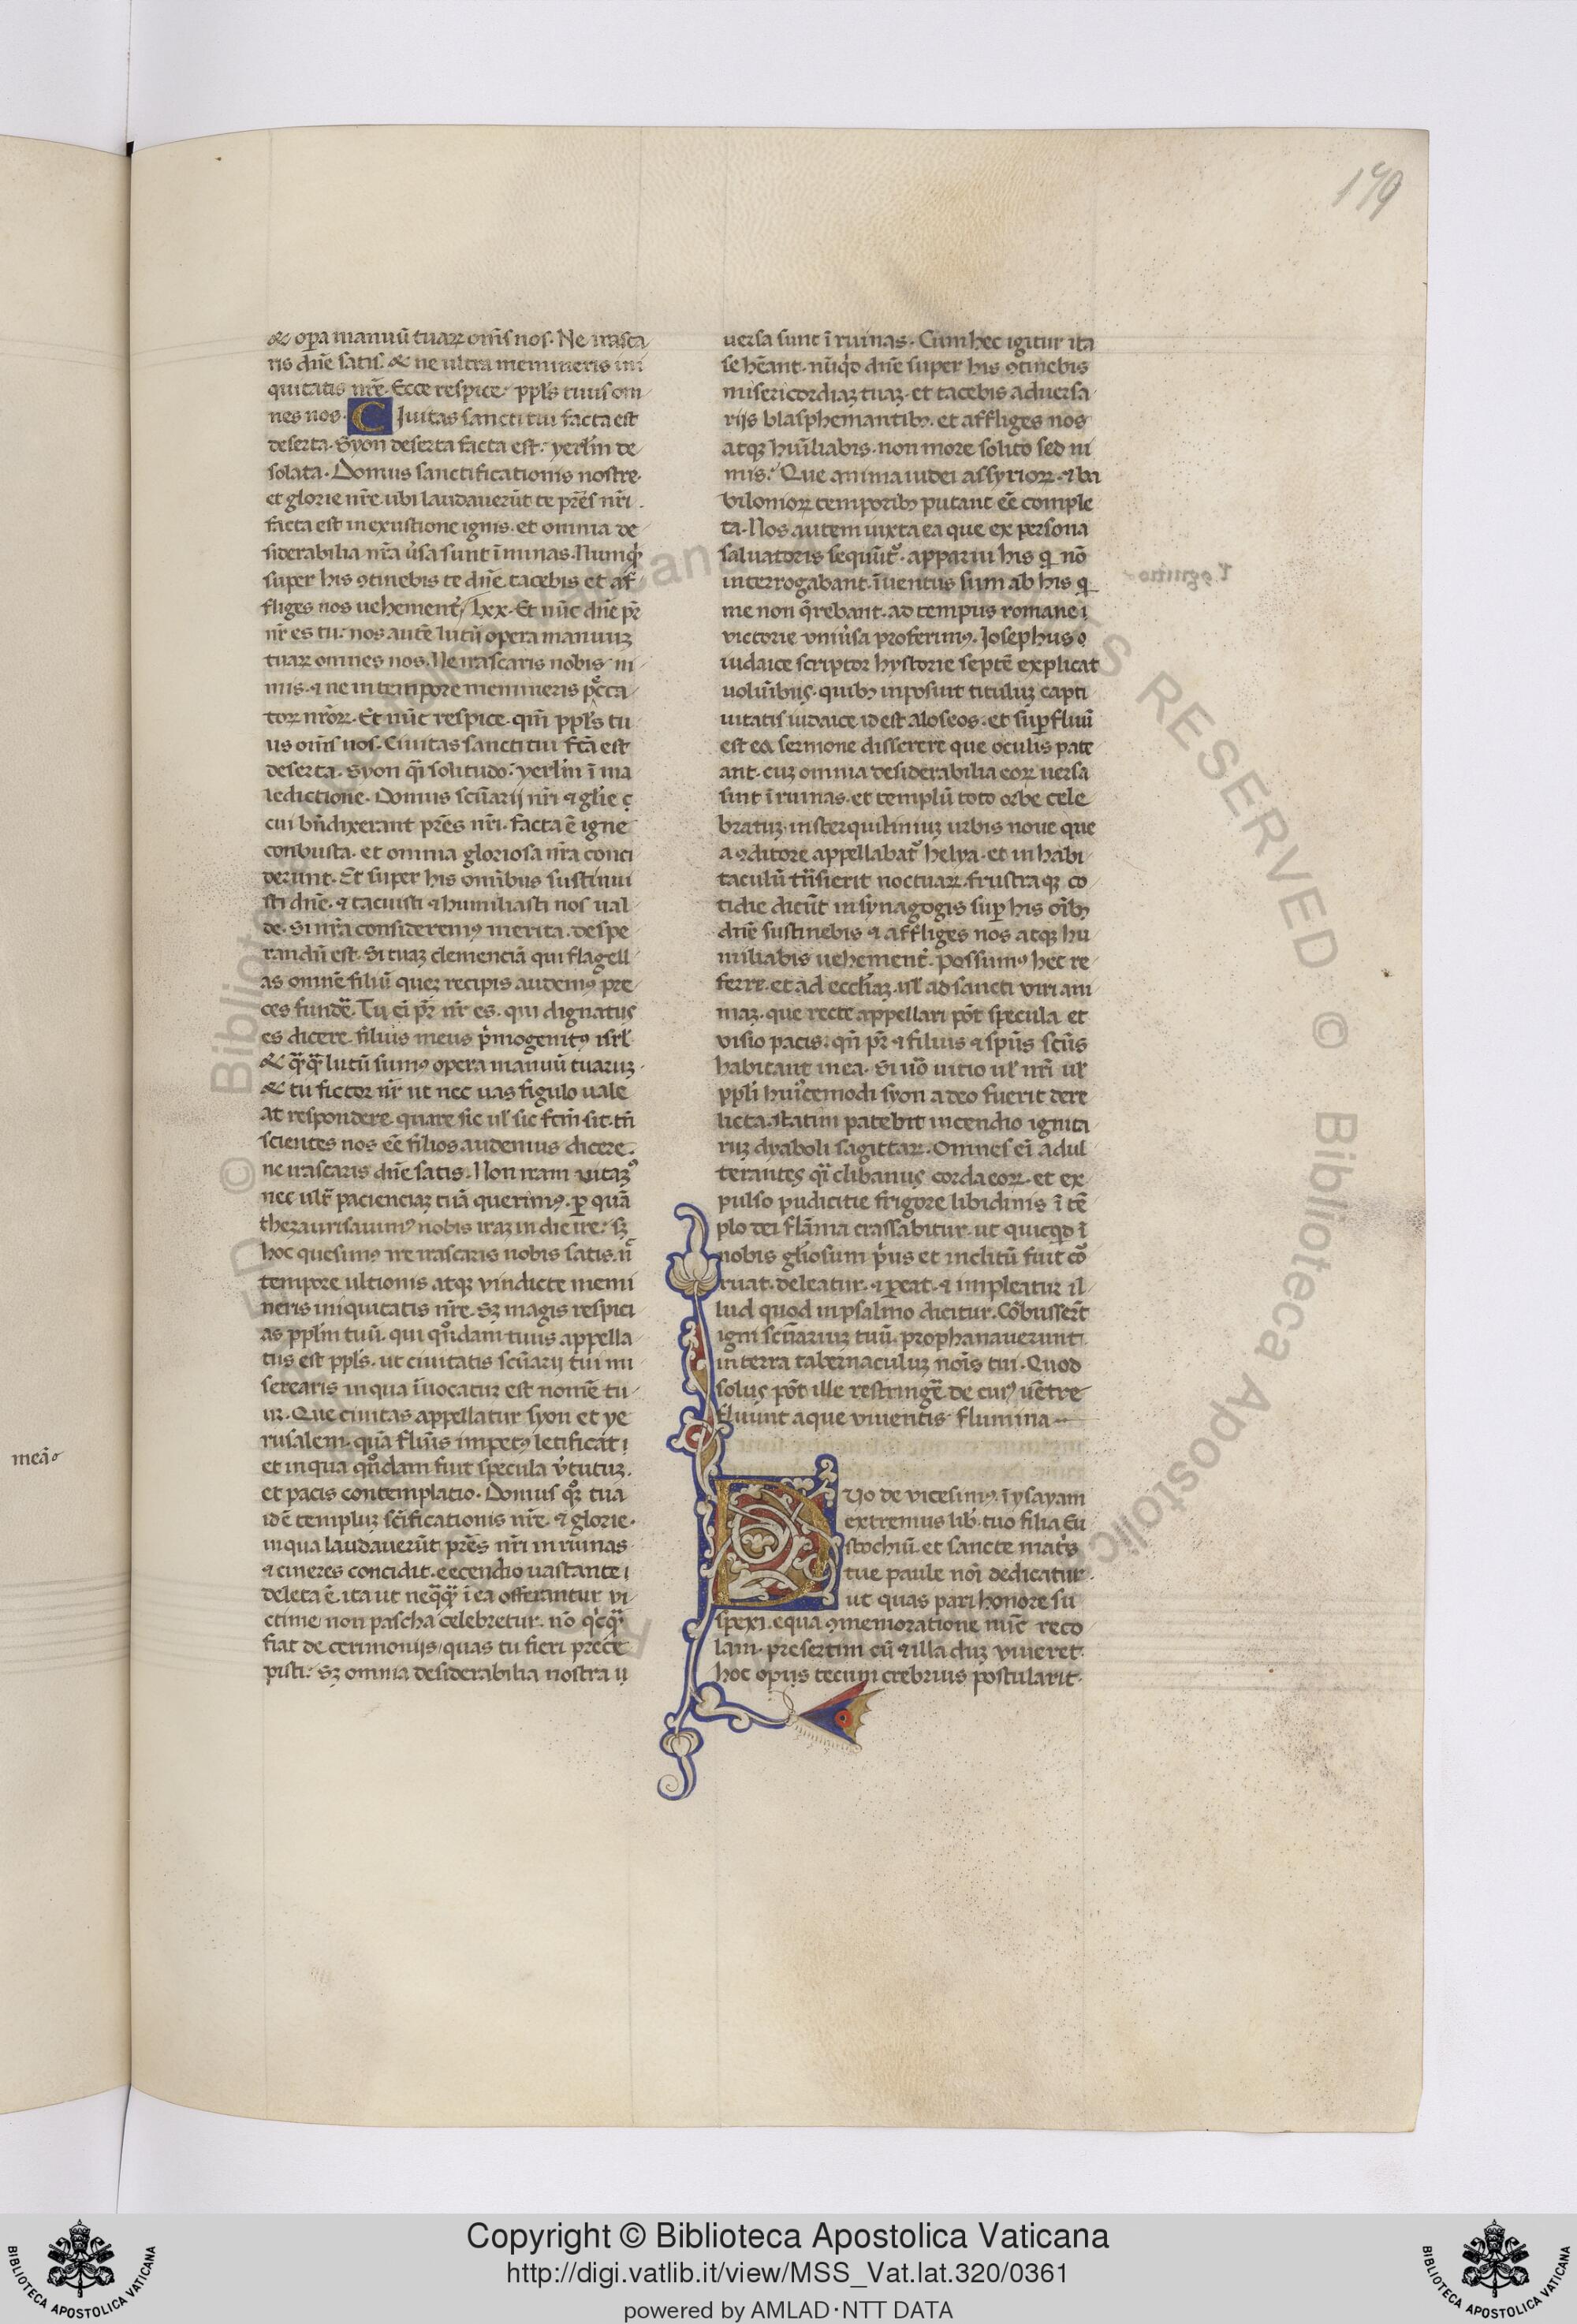 149
& oꝑa manuū tuaꝝ om̄s nos. Ne irasca
ris dn̄e satis. & ne ultra memineris ini
quitatis nr̄e. Ecce respice. ppl̄s tuus om
nes nos. Ciuitas sancti tui facta est
deserta. Syon deserta facta est. yerl̄m de
solata. Domus sanctificationis nostre.
et glorie nr̄e. ubi laudauerūt te pr̄es nr̄i.
facta est in exustione ignis. et omnia de
siderabilia nr̄a u̓sa sunt ī ruinas. Numqͥd
super his ꝯtinebis te dn̄e. tacebis et af
fliges nos uehement̓. lxx. Et nūc dn̄e pr̄
nr̄ es tu. nos autē lutū opera manuuꝫ
tuaꝝ omnes nos. Ne irascaris nobis ni
mis. ⁊ ne in tempore memineris pc̄ca
toꝝ nr̄oꝝ. Et nūc respice. qm̄ ppl̄s tu
us om̄s nos. Ciuitas sancti tui fc̄a est
deserta. Syon qͣi solitudo. yerl̄m ī ma
ledictione. Domus scūarij nr̄i ⁊ gl̄ie ꝯ
cui bn̄dixerant pr̄es nr̄i. facta ē igne
conbusta. et omnia gloriosa nr̄a conci
derunt. Et super his omībus sustinui
sti dn̄e. ⁊ tacuisti ⁊ humiliasti nos ual
de. Si nr̄a consideremꝰ merita. despe
randū est. Si tuaꝫ clemenciā qui flagell
as omnē filiū queꝫ recipis audemꝰ pre
ces funde᷒. Tu ei̓ pr̄ nr̄ es. qui dignatus
es dicere. filius meus pͥmogenitꝰ isrl̄.
& qͣqͣ lutū sumꝰ opera manuū tuaruꝫ.
& tu fictor nr̄ ut nec uas figulo uale
at respondere quare sic ul̓ sic fcm̄ sit. tn̄
scientes nos ēē filios audemus dicere.
ne irascaris dn̄e satis. Non iram uitaꝫꝰ
nec ult̓ pacienciaꝫ tuā querimꝰ. ꝑ quā
thezaurisauimꝰ nobis iraꝫ in die ire. sꝫ
hoc quesumꝰ ne irascaris nobis satis. n̄
tempore ultionis atqꝫ vindicte memi
neris iniquitatis nr̄e. Sꝫ magis respici
as ppl̄m tuū. qui qͦndam tuus appella
tus est ppl̄s. ut ciuitatis scūarij tui mi
serearis in qua īuocatur est nomē tu
uꝫ. Que ciuitas appellatur syon et ye
rusalem. quā fluīs impetꝰ letificat.
et in qua qͦndam fuit specula v̓tutuꝫ.
et pacis contemplatio. Domus qͦꝫ tua
id ē templuꝫ scīficationis nr̄e. ⁊ glorie.
in qua laudauerūt pr̄es nr̄i in ruinas
⁊ cineres concidit. et cendio uastante
deleta ē. ita ut neqͣqͣ ī ea offerantur vi
ctime. non pascha celebretur. nō qͥcqͣ
fiat de cerimonijs quas tu fieri prece
pisti. Sꝫ omnia desiderabilia nostra u
uersa sunt ī ruinas. Cum hec igitur ita
se hēant. nūqͥd dn̄e super his ꝯtinebis
misericordiaꝫ tuaꝫ. et tacebis aduersa
rijs blasphemantibꝫ. et affliges nos
atqꝫ hum̄liabis. non more solito sed ni
mis. Que omnia iudei assyrioꝝ. ⁊ ba
bilonioꝝ temporibꝫ putant ēē comple
ta. Nos autem iuxta ea que ex persona
saluatoris sequūt᷒. apparui his qͥ nō
interrogabant. īuentus sum ab his qͥ
me non q̄rebant. ad tempus romane
victorie vniu̓sa proferimꝰ. Josephus
iudaice scriptor hystorie septē explicat
uolum̄ibus. quibꝫ inposuit tituluꝫ capti
uitatis iudaice id est aloseos. et suꝑfluū
est ea sermone disserere que oculis pate
ant. cuꝫ omnia desiderabilia eoꝝ uersa
sint ī ruinas. et templū toto orbe cele
bratuꝫ. in sterquiliniuꝫ urbis noue que
a ꝯditore appellabat᷒ helya. et in habi
taculū trāsierit noctuaꝝ. frustraqꝫ co
tidie dicūt in synagogis suꝑ his oībꝫ
dn̄e sustinebis ⁊ affliges nos atqꝫ hu
miliabis uehement̓. Possumꝰ hec re
ferre. et ad eccl̄iaꝫ. ul̓ ad sancti viri ani
maꝫ. que recte appellari pōt specula et
visio pacis. qn̄ pr̄ ⁊ filius ⁊ spūs scūs
habitant in ea. Si uͦ uitio ul̓ nr̄i ul̓
ppl̄i huīcemodi syon a deo fuerit dere
licta. statim patebit incendio igniti
ruꝫ dyaboli sagittaꝝ. Omnes ei̓ adul
terantes qͣi clibanus corda eoꝝ. et ex
pulso pudicitie frigore libidinis ī tē
plo dei flāma crassabitur. ut quicqͥd ī
nobis gl̄iosum pͥus et inclitū fuit cō
ruat. deleatur. ⁊ ꝑeat. ⁊ impleatur il
lud quod in psalmo dicitur. Cōbusser̄t
igni scūariuꝫ tuū. prophanauerunt
in terra tabernaculuꝫ noīs tui. Quod
solus pōt ille restringe᷒ de cuiꝰ uētre
fluūnt aque viuentis flumina
Duo de vicesimꝰ ī ysayam
extremus lib̓. tuo filia Eu
stochiū. et sancte mat̓s
tue paule noī dedicatur.
ut quas pari honore su
spexi. equa ꝯmemoratione nūc reco
lam. presertim cū ⁊ illa duꝫ viueret.
hoc opus tecum crebrius postularit.
meā
Copyright © Biblioteca Apostolica Vaticana
http://digi.vatlib.it/view/MSS_Vat.lat.320/0361
powered by AMLAD·NTT DATA
BIBLIOTECA APOSTOLICA VATICANA
BIBLIOTECA APOSTOLICA VATICANA